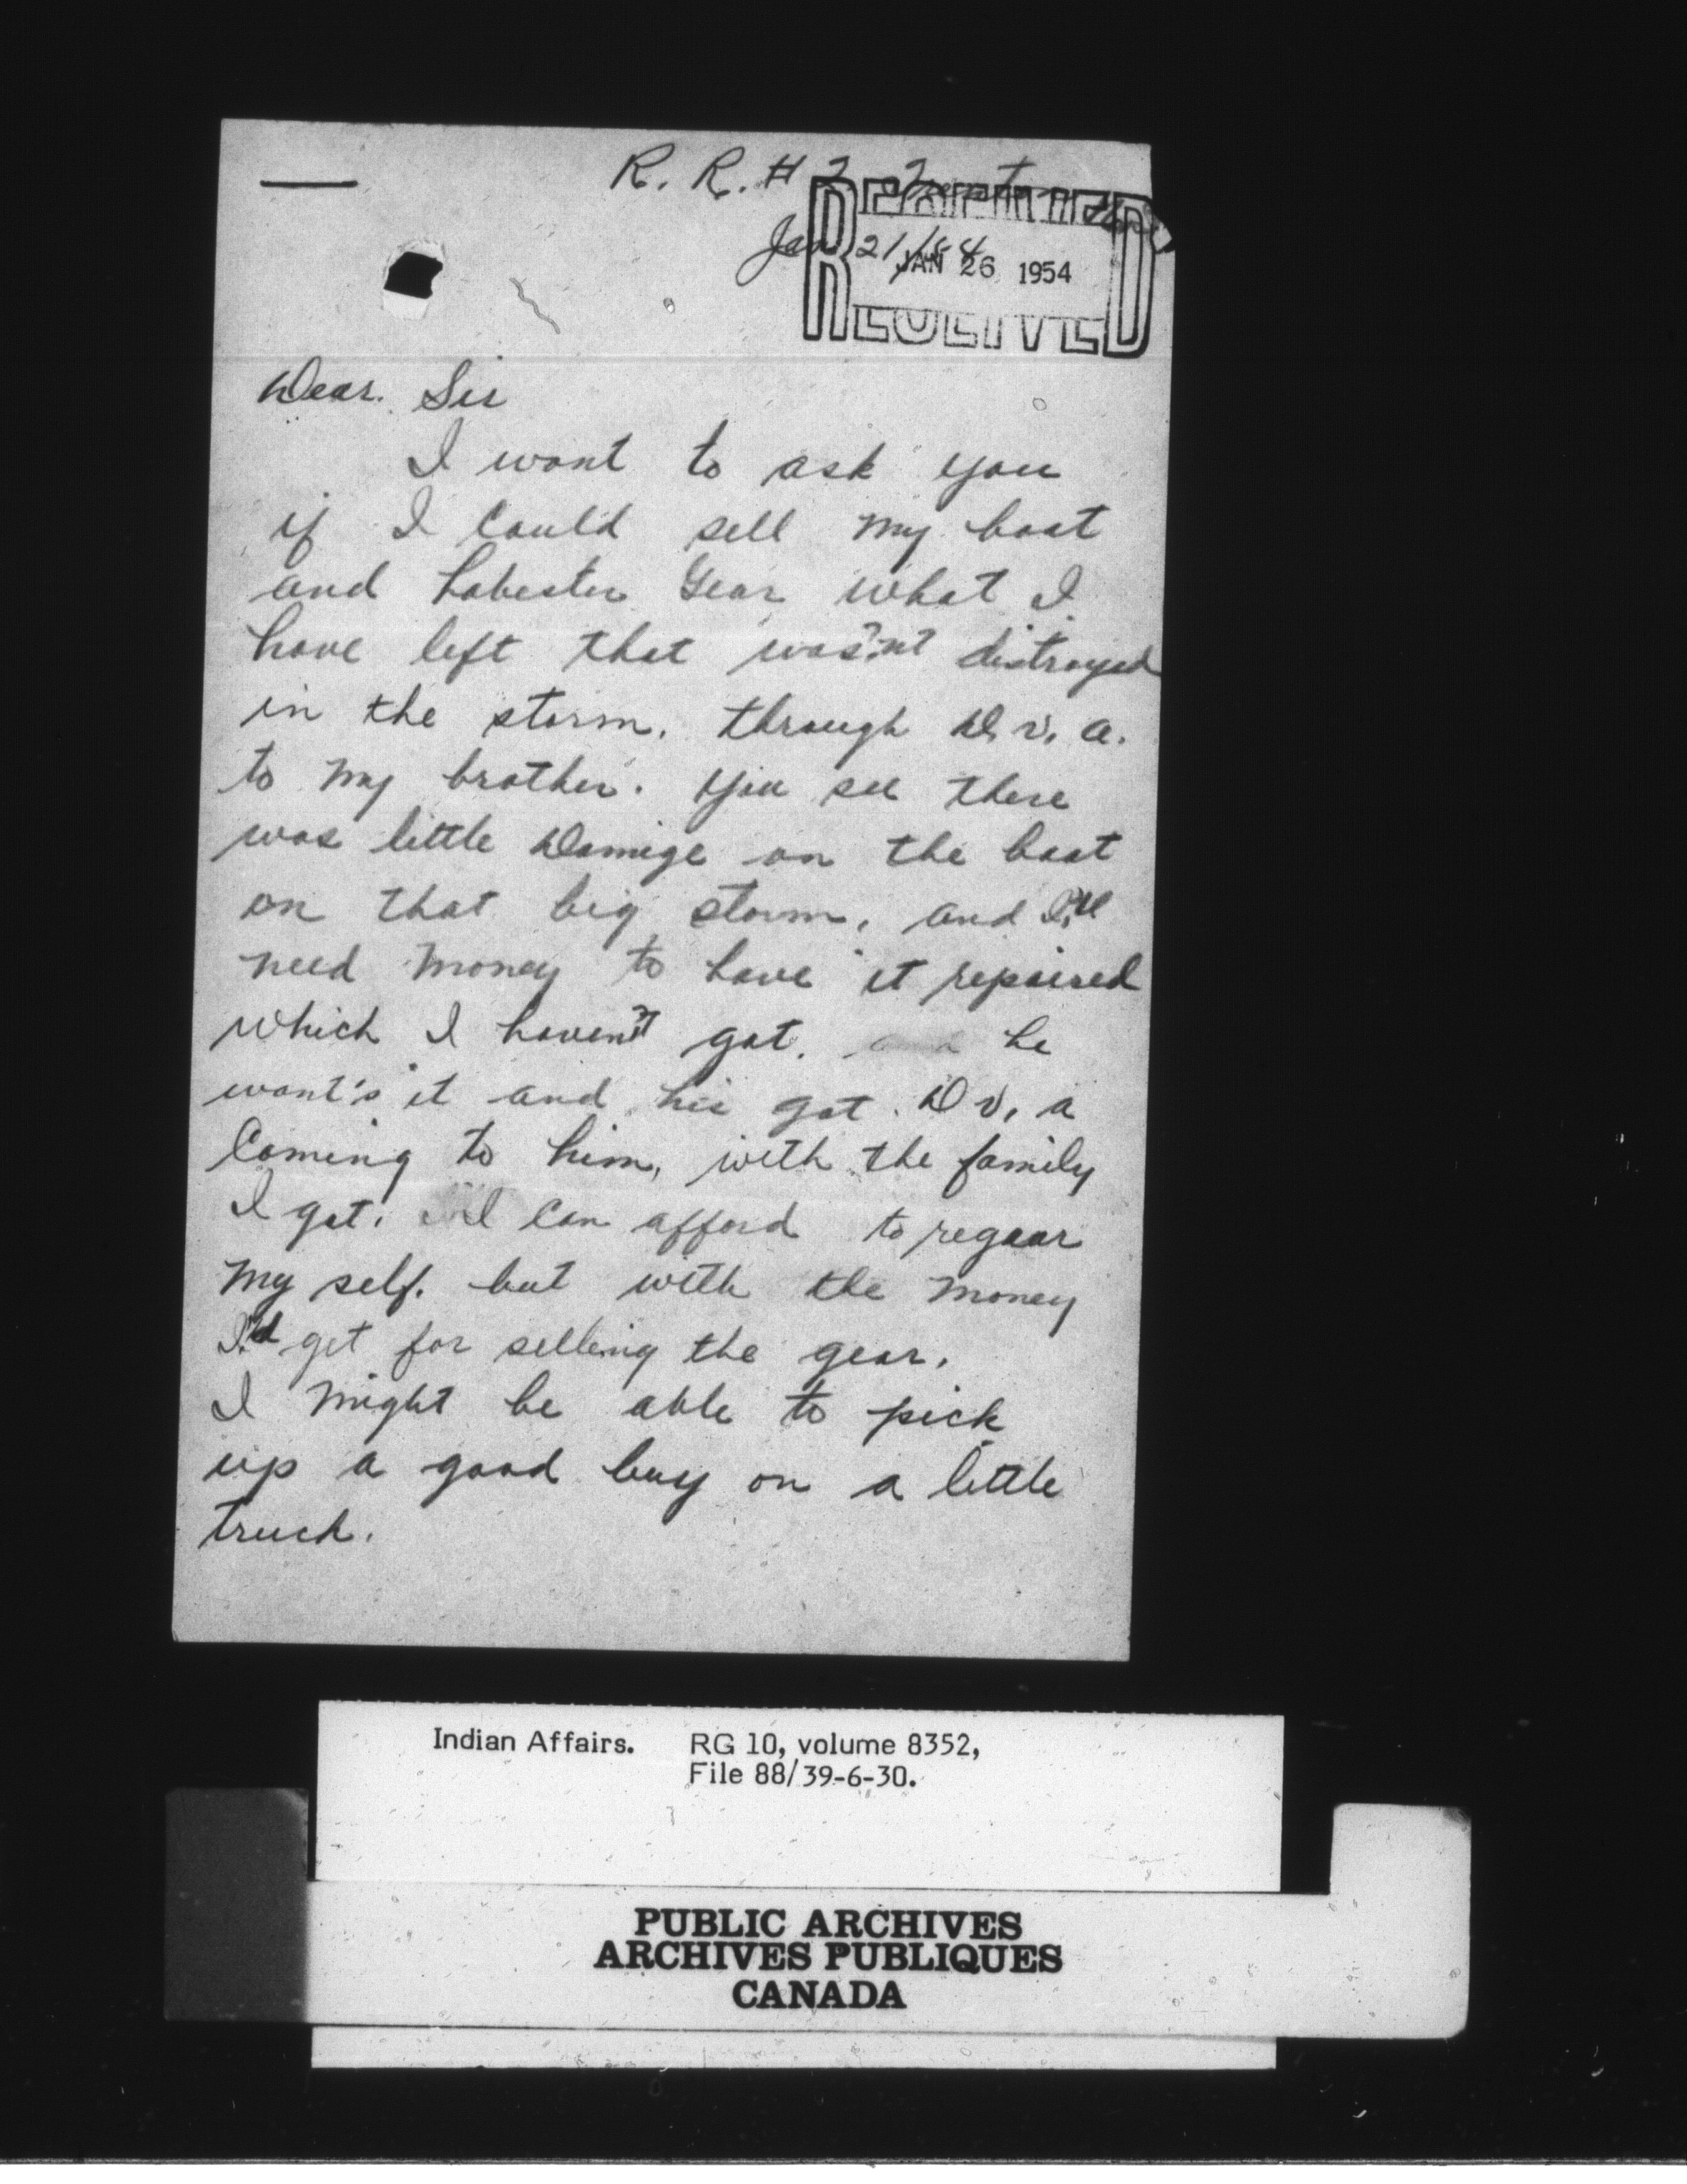 R. R. # 2
Jan 21/54
RECEIVED
JAN 26 1954
RECEIVED
Dear. Sir
I want to ask you
if I could sell my boat
and Lobester Gear what I
have left that was'nt distroyed
in the storm. through D. v. a.
to my brother. you see there
was little Damige on the boat
on that big storm, and I'll
need money to have it repaired
which I haven't got. he
want's it and his got. D v. a
Coming to him, with the family
I got. I can afford to regear
my self. but with the money
I'd get for selling the gear.
I might be able to pick
up a good buy on a little
truck.
Indian Affairs. RG 10, volume 8352,
File 88/39-6-30.
PUBLIC ARCHIVES
ARCHIVES PUBLIQUES
CANADA